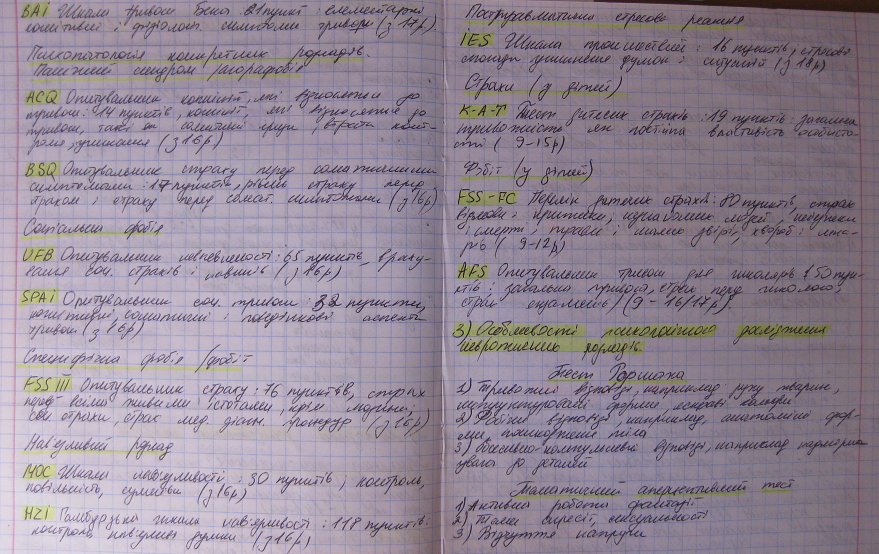 BAI Шкала тривоги Бека: 21 пункт: елементарні
когнітивні і фізіологіч. симптоми тривоги (з 17р)
Психопатологія конкретних розладів.
Панічний синдром /агорафобія
ACQ Опитувальник когніцій, які відносяться до
тривоги: 14 пунктів, когніції, які відносяться до
тривоги, такі як втрата конт-
ролю, (з 16р)
BSQ Опитувальник страху перед соматичними
симптомами: 17 пунктів, рівень страху перед
страхом і страху перед сомат. симптомами (з 16р)
Соціальна фобія
UFB Опитувальник невпевненості: 65 пунктів, враху-
вання соц. страхів і навичків (з 16р)
SPAI Опитувальник соц. тривоги: 32 пункти,
когнітивні, соматичні і поведінкові аспекти
тривоги (з 16р)
Специфічна фобія /фобії
FSS III Опитувальник страху: 76 пунктів, страх
перед всіма живими істотами, крім людини,
соц. страхи, страх мед. процедур (з 16р)
Нав'язливий розлад
MOC Шкала нав'язливості: 30 пунктів, контроль,
повільність, сумніви (з 16р)
HZI Гамбурзька шкала нав'язливості: 118 пунктів:
контроль, нав'язливі думки (з 16р)
Посттравматична стресова реакція
IES Шкала пригод: 16 пунктів, стресові
спогади, уникнення думок і ситуацій (з 18р)
Страхи (у дітей)
K-A-T Тест дитячих страхів: 19 пунктів: загальна
тривожність як постійна властивість особисто-
сті (9-15р)
Фобії (у дітей)
FSS-FC Перелік дитячих страхів: 80 пунктів, страх
відмови і критики, незнайомих людей, небезпеки
і смерті, травми і малих звірів, хвороб і ліка-
рів (9-12р)
AFS Опитувальник тривоги для школярів (50 пун-
ктів: загальна тривога, страх перед школою,
страх екзаменів) (9-16/17р).
3) Особливості психологічного дослідження
невротичних розладів.
Тест Роршаха
1) Тривожні відповіді, наприклад руху тварин,
форми,
2) відповіді, наприклад, анатомічні фор-
ми, пошкоджені тіла
3) Обсесивно-компульсивні відповіді, наприклад надмірна
увага до деталей
Тематичний аперцептивний тест
1) Активна робота фантазії
2) Теми агресії, сексуальності
3) Відчуття напруги